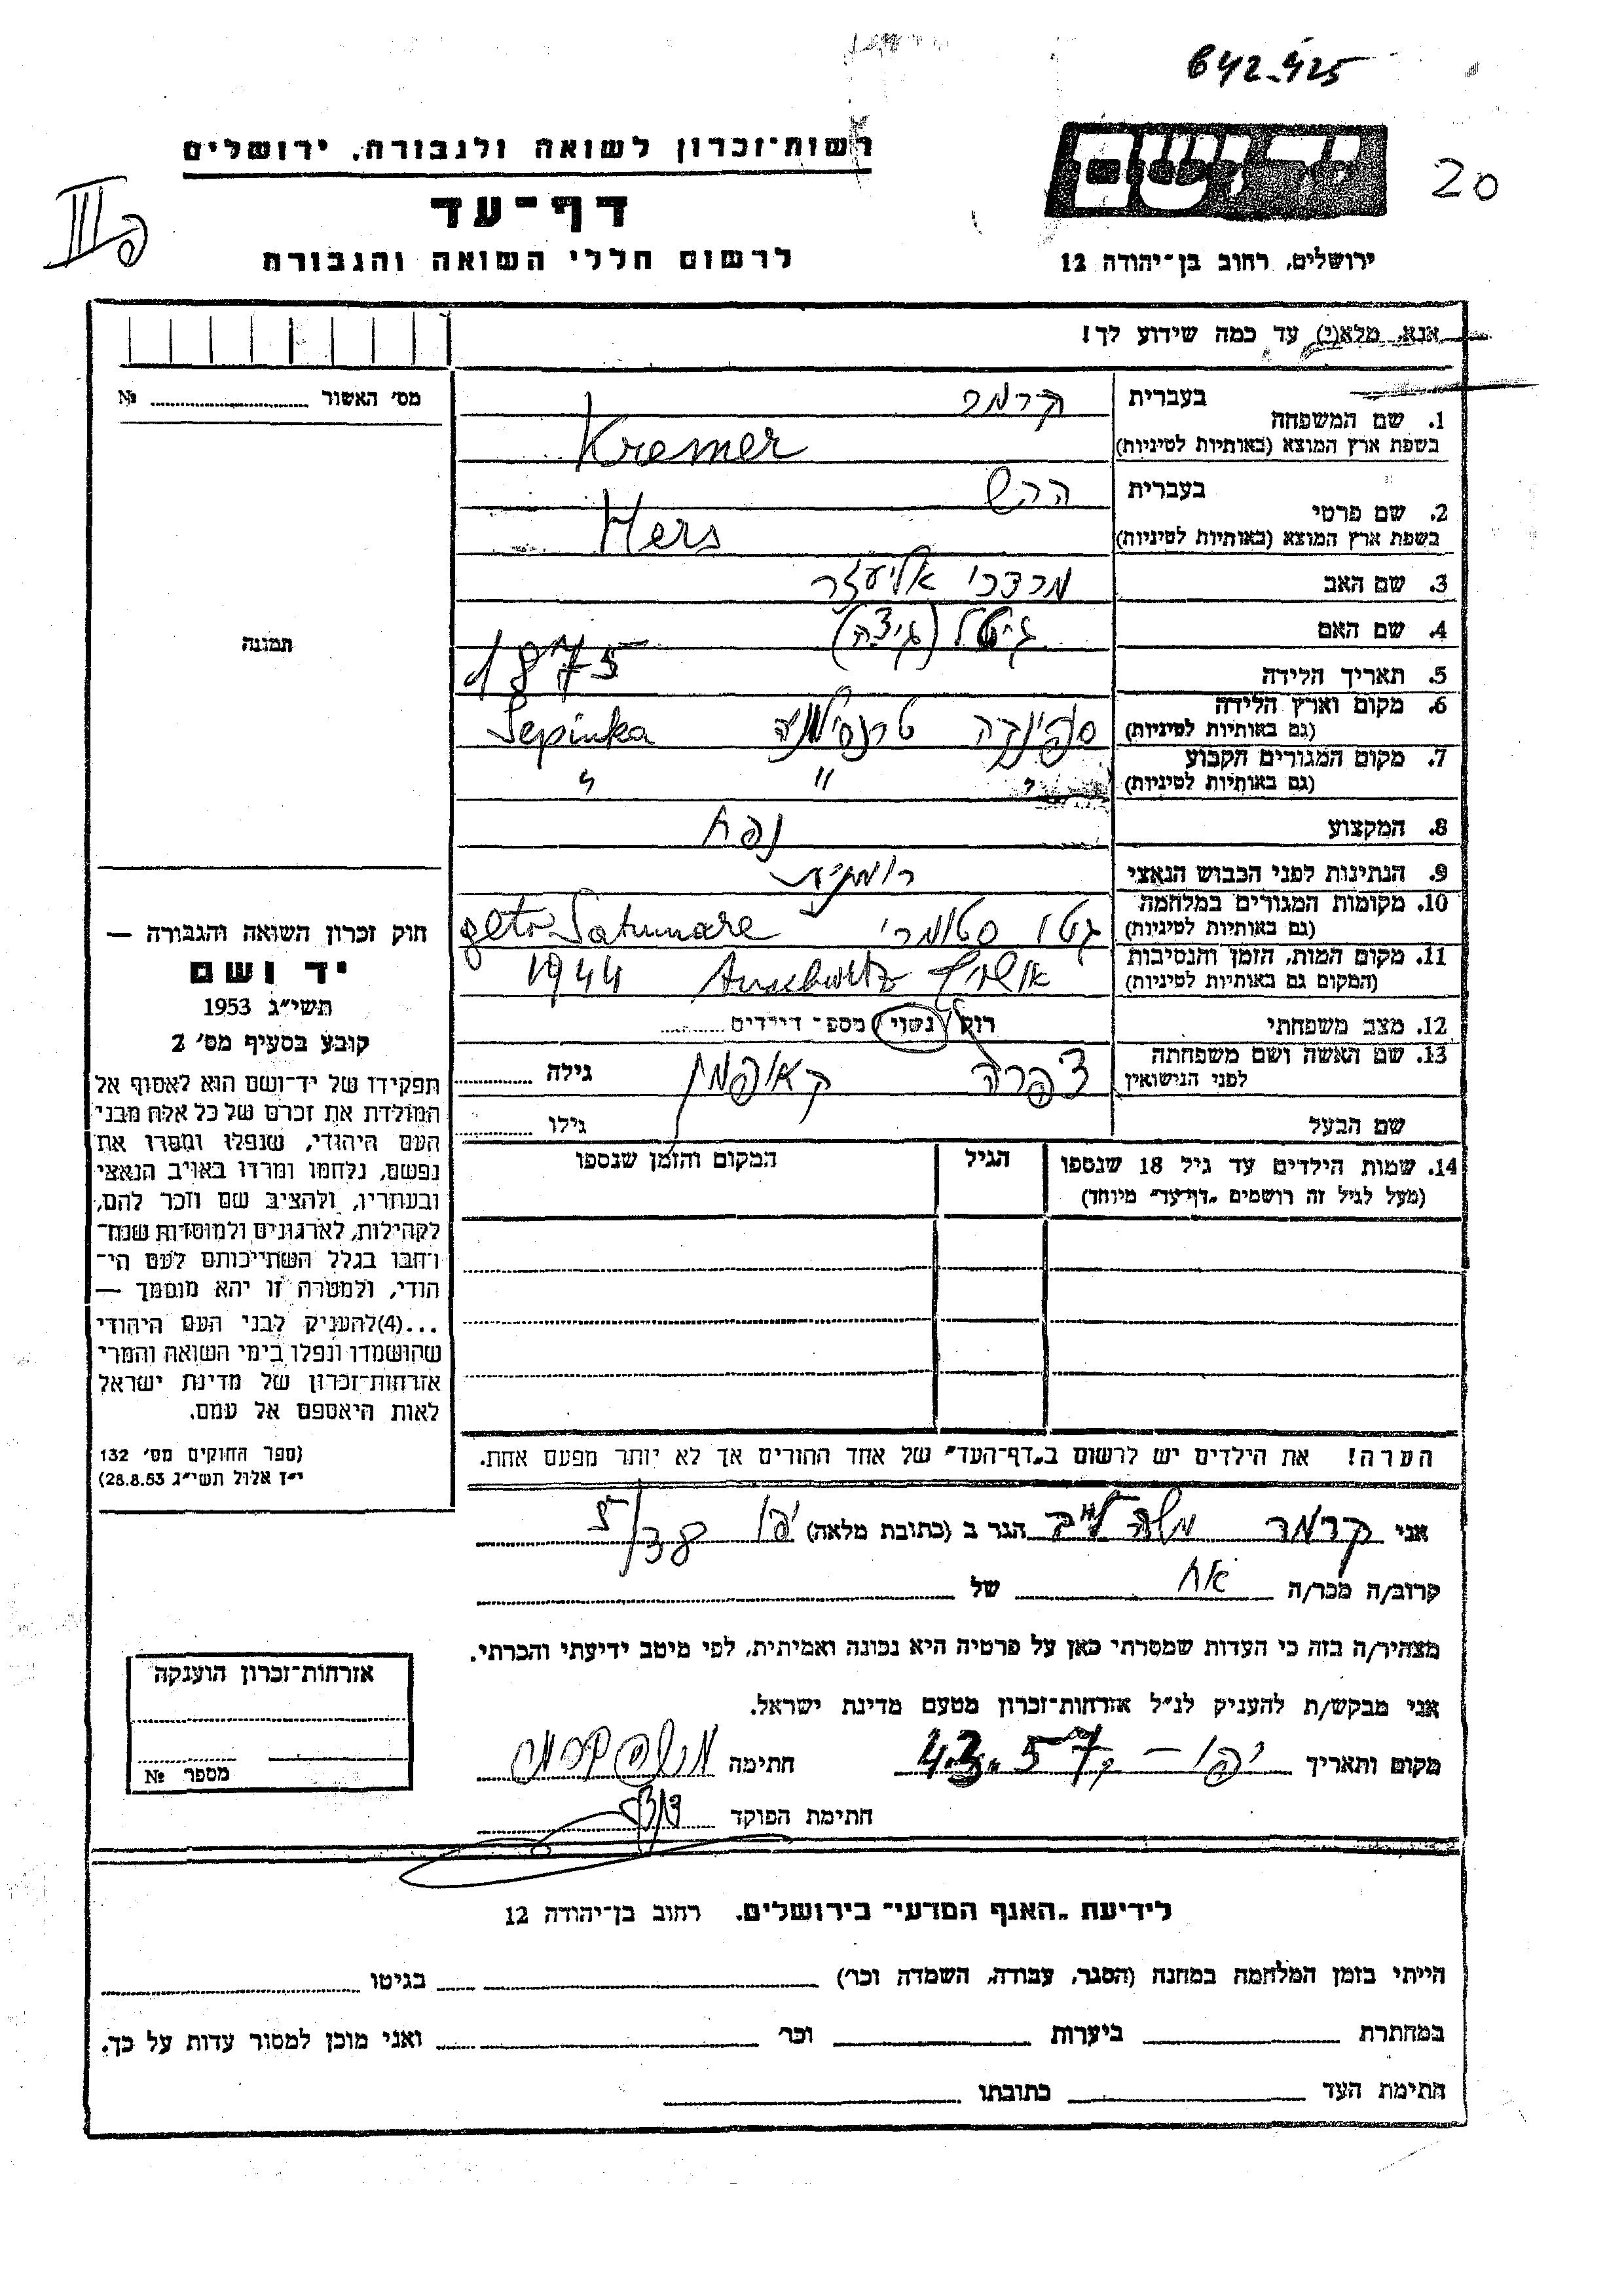 642-425
20
יד ושם
ירושלים, רחוב בן־יהודה 12
רשות־זכרון לשואה ולגבורה, ירושלים
דף־עד
לרשום חללי השואה והגבורה
אנא, מלא(י) עד כמה שידוע לך!
מס׳ האשור № ..........
תמונה
בעברית קרמר
1. שם המשפחה
בשפת ארץ המוצא (באותיות לטיניות) Kremer
בעברית הרש
2. שם פרטי
בשפת ארץ המוצא (באותיות לטיניות) Hers
3. שם האב מרדכי אליעזר
4. שם האם גיטל (גיצה)
5. תאריך הלידה 1875
6. מקום וארץ הלידה
(גם באותיות לטיניות) ספינקה טרנסילוניה Sepinka
7. מקום המגורים הקבוע
(גם באותיות לטיניות) " " "
8. המקצוע נפח
9. הנתינות לפני הכבוש הנאצי רומנית
10. מקומות המגורים במלחמה
(גם באותיות לטיניות) גטו סטומרי geto Satumare
11. מקום המות, הזמן והנסיבות
(המקום גם באותיות לטיניות) אושויץ Auschwitz 1944
12. מצב משפחתי רוק/ נשוי/ מספר דיירים ..........
13. שם האשה ושם משפחתה
לפני הנישואין צפרה קאופמן גילה ..........
שם הבעל גילו ..........
14. שמות הילדים עד גיל 18 שנספו הגיל המקום והזמן שנספו
(מעל לגיל זה רושמים „דף־עד” מיוחד)
הערה! את הילדים יש לרשום ב„דף־העד” של אחד ההורים אך לא יותר מפעם אחת.
חוק זכרון השואה והגבורה —
יד ושם
תשי״ג 1953
קובע בסעיף מס׳ 2
תפקידו של יד־ושם הוא לאסוף אל
המולדת את זכרם של כל אלה מבני
העם היהודי, שנפלו ומסרו את
נפשם, נלחמו ומרדו באויב הנאצי
ובעוזריו, ולהציב שם וזכר להם,
לקהילות, לארגונים ולמוסדות שנח־
רבו בגלל השתייכותם לעם הי־
הודי, ולמטרה זו יהא מוסמך —
...(4)להעניק לבני העם היהודי
שהושמדו ונפלו בימי השואה והמרי
אזרחות־זכרון של מדינת ישראל
לאות היאספם אל עמם.
(ספר החוקים מס׳ 132
י״ז אלול תשי״ג 28.8.53)
אני קרמר משה לייב הגר ב (כתובת מלאה) יפו
קרוב/ה מכר/ה אח של ..........
מצהיר/ה בזה כי העדות שמסרתי כאן על פרטיה היא נכונה ואמיתית, לפי מיטב ידיעתי והכרתי.
אני מבקש/ת להעניק לנ״ל אזרחות־זכרון מטעם מדינת ישראל.
מקום ותאריך יפו — 43.57 חתימה
חתימת הפוקד
אזרחות־זכרון הוענקה
מספר №
לידיעת „האגף המדעי” בירושלים, רחוב בן־יהודה 12
הייתי בזמן המלחמה במחנה (הסגר, עבודה, השמדה וכו׳) .......... בגיטו ..........
במחתרת .......... ביערות .......... וכו׳ .......... ואני מוכן למסור עדות על כך.
חתימת העד .......... כתובתו ..........